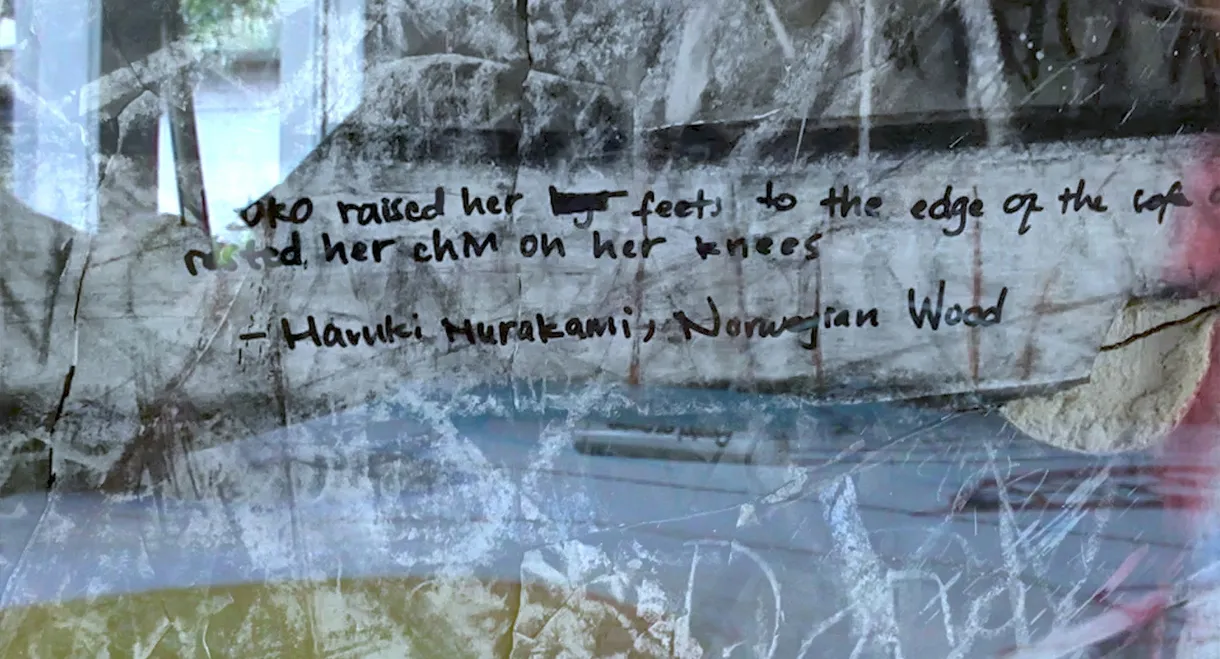 oko raised her feets to the edge of the sofa
rested her chin on her knees
- Haruki Murakami, Norwegian Wood